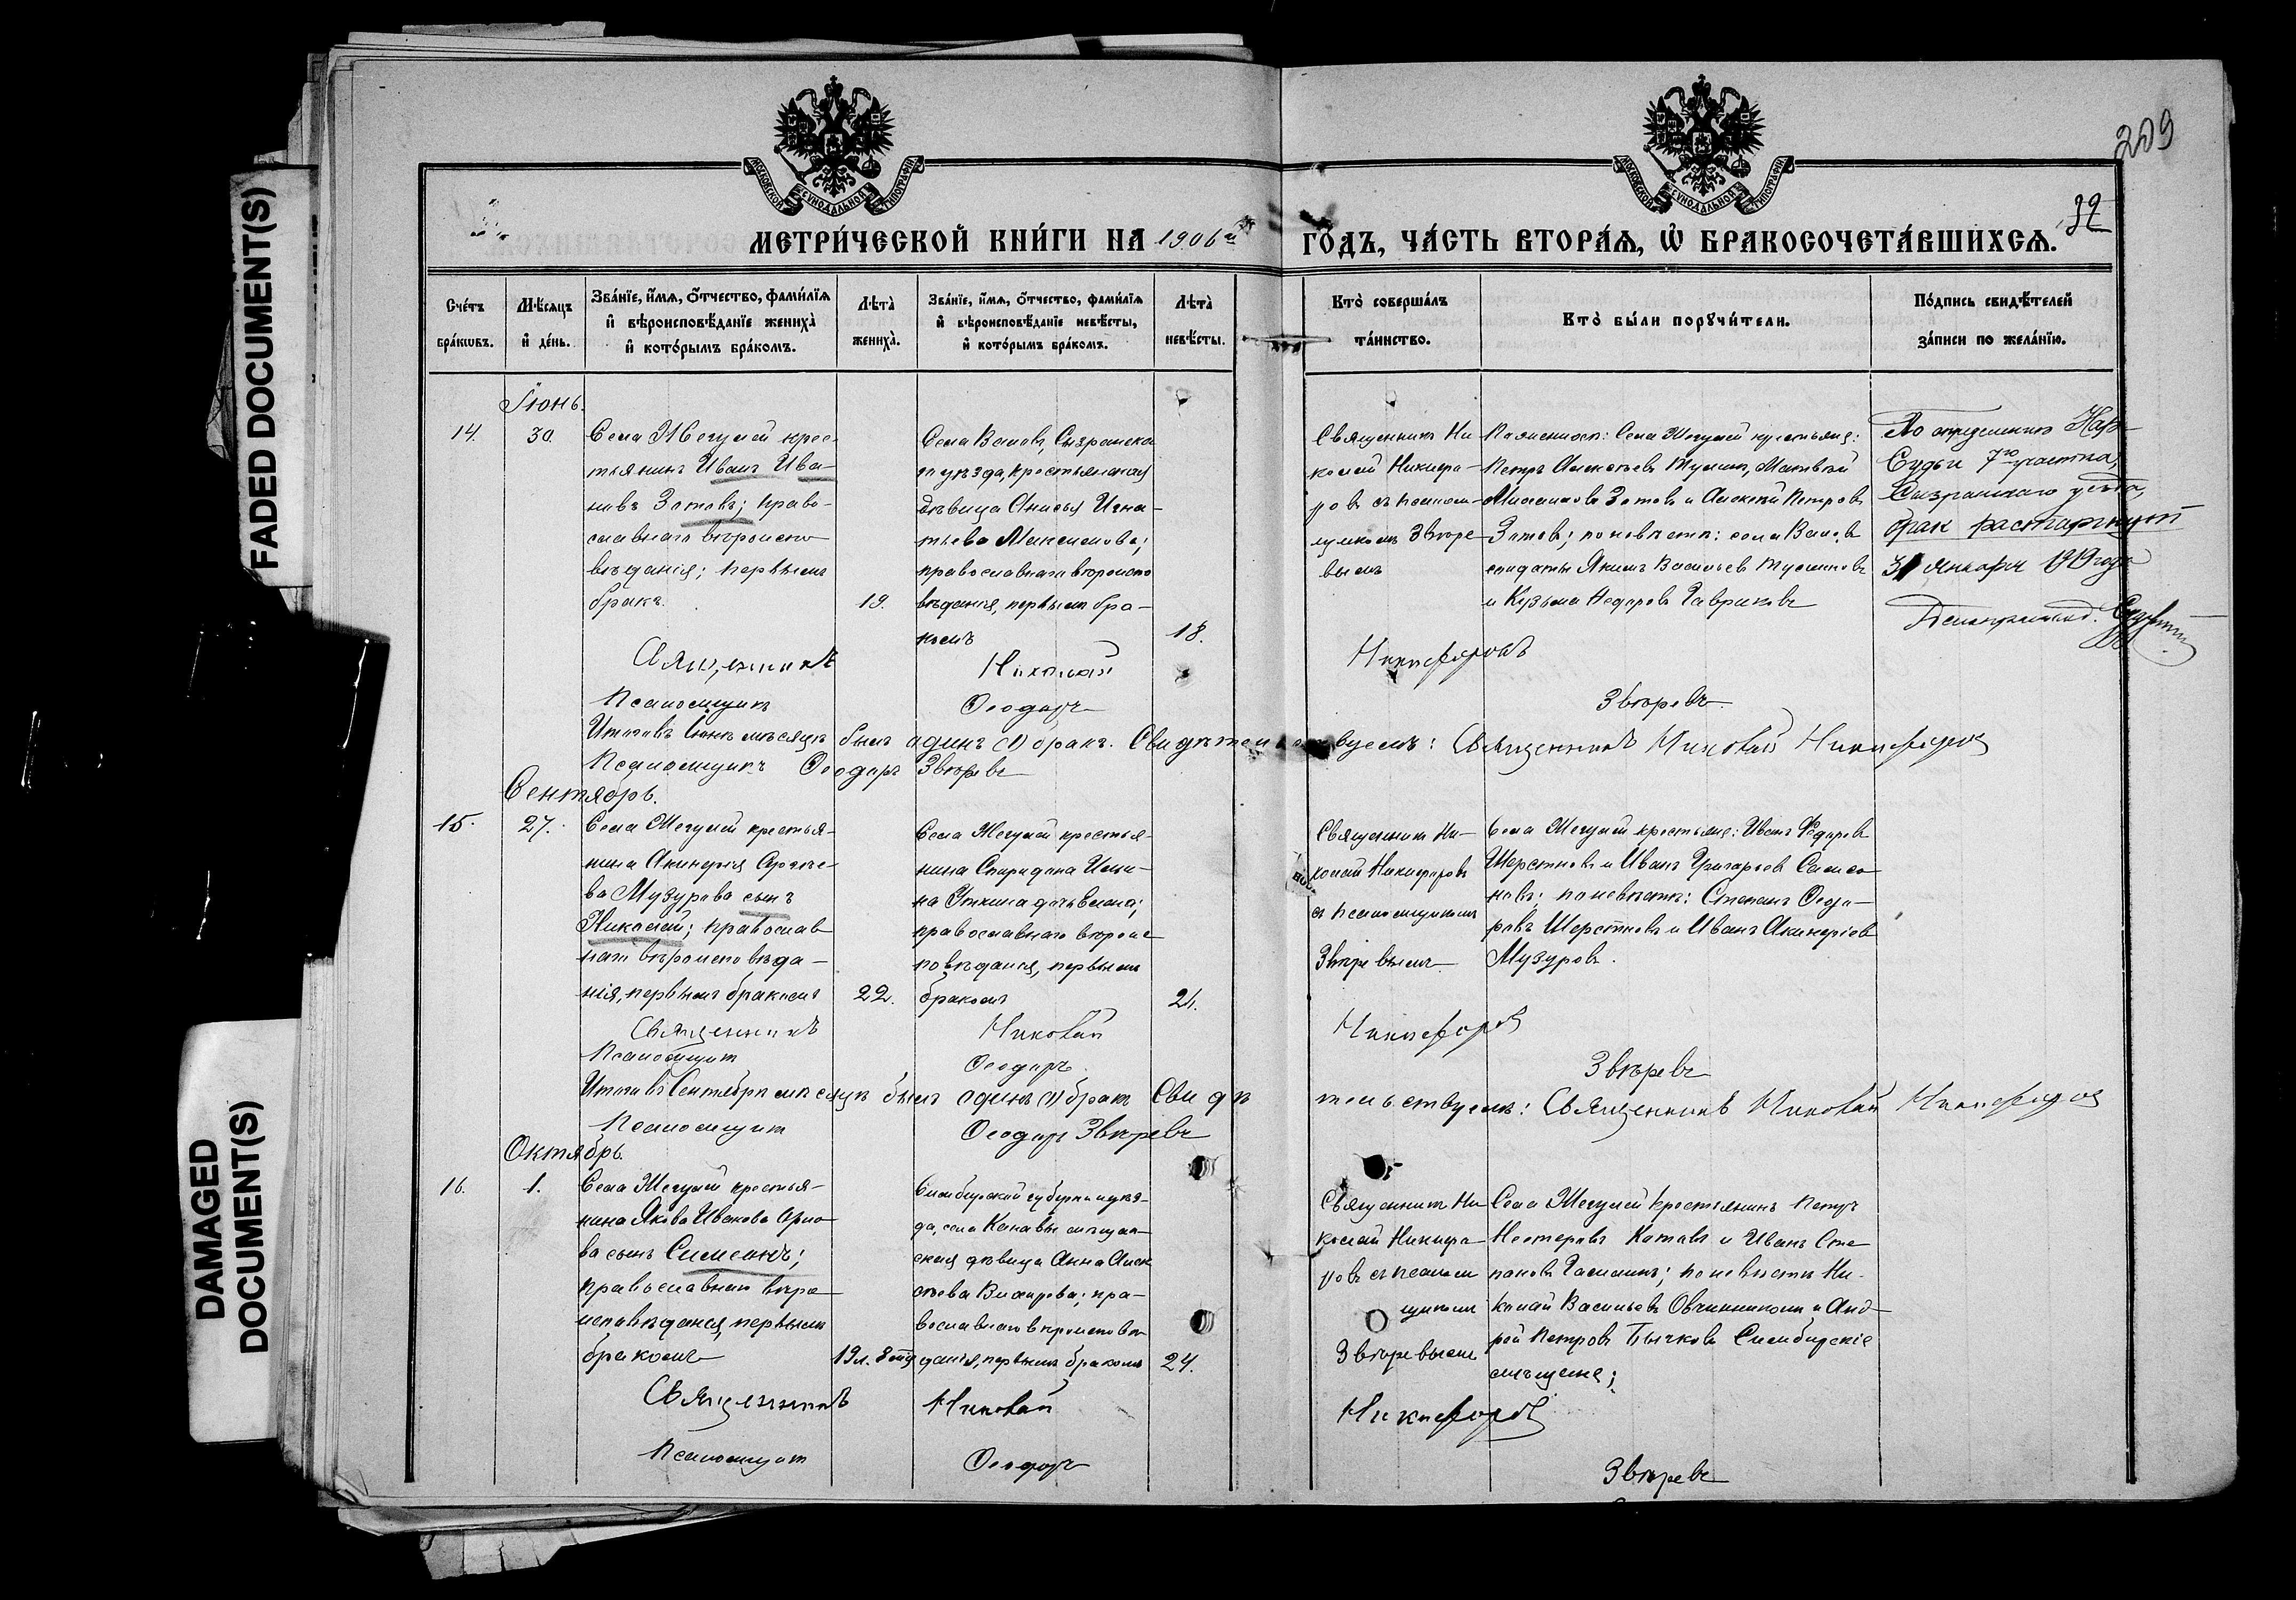 FADED DOCUMENT(S)
DAMAGED
DOCUMENT(S)
209
32
МОСКОВСКОЙ СѴНОДАЛЬНОЙ ТИПОГРАФІИ
МОСКОВСКОЙ СѴНОДАЛЬНОЙ ТИПОГРАФІИ
МЕТРИ́ЧЕСКОЙ КНИ́ГИ НА 1906й ГО́ДЪ, ЧА́СТЬ ВТОРА́Я, Ѡ҆ БРАКОСОЧЕТА́ВШИХСЯ.
Сче́тъ
бра́кѡвъ.
Мѣ́сяцъ
и҆ де́нь.
Зва́нїе, и҆́мя, ѻ҆́тчество, фами́лїя
и҆ вѣроисповѣ́данїе жениха̀
и҆ кото́рымъ бра́комъ.
Лѣта̀
жениха̀.
Зва́нїе, и҆́мя, ѻ҆́тчество, фами́лїя
и҆ вѣроисповѣ́данїе невѣ́сты,
и҆ кото́рымъ бра́комъ.
Лѣта̀
невѣ́сты.
Кто̀ соверша́лъ
та́инство.
Кто̀ бы́ли порꙋчи́тели.
По́дпись свидѣ́телей
за́писи по жела́нїю.
Іюнь.
14.
30.
Села Жегулей крес-
тьянинъ Иванъ Ива-
новъ Зотовъ; право-
славнаго вѣроиспо
вѣданія; первымъ
бракъ.
19.
Села Валовъ, Сызранска
го уѣзда, крестьянская
дѣвица Анисья Игна-
тьева Максимова;
православнаго вѣроиспо
вѣданія, первымъ бра-
комъ
18.
Священникъ Ни
колай Никифо-
ровъ съ псалом-
щикомъ Звѣре
вымъ
По женихѣ: Села Жегулей крестьяне:
Петръ Алексѣевъ, Матвѣй
Зотовъ и Алексѣй Петровъ
Зотовъ; по невѣстѣ: села Валовъ
солдаты Якимъ Васильевъ
и Кузьма Федоровъ Гавриковъ
По определению Нар
Судьи 7го участка,
Сызранского уезда,
брак расторгнут
31 января 1919 года
Священникъ Николай Никифоровъ
Псаломщикъ Ѳеодоръ Звѣревъ
Итого въ Іюнѣ мѣсяцѣ былъ одинъ (1) бракъ. Свидѣтельствуемъ: Священникъ Николай Никифоровъ
Псаломщикъ Ѳеодоръ Звѣревъ
Сентябрь.
15.
27.
Села Жегулей крестья-
нина Акиндина
ва Музурова сынъ
Николай; православ
наго вѣроисповѣда-
нія, первымъ бракомъ
22.
Села Жегулей крестья-
нина Спиридона
на Уткина дочь
православнаго вѣроис
повѣданія, первымъ
бракомъ
21.
Священникъ Ни-
колай Никифоровъ
съ псаломщикомъ
Звѣревымъ
Села Жегулей крестьяне: Иванъ Ѳедоровъ
Шерстневъ и Иванъ Григорьевъ Самсо
новъ; по невѣстѣ: Степанъ Ѳедо-
ровъ Шерстневъ и Иванъ
Музуровъ.
Священникъ Николай Никифоровъ
Псаломщикъ Ѳеодоръ Звѣревъ
Итого въ Сентябрѣ мѣсяцѣ былъ одинъ (1) бракъ Свидѣтельствуемъ: Священникъ Николай Никифоровъ
Псаломщикъ Ѳеодоръ Звѣревъ
Октябрь.
16.
1.
Села Жегулей крестья-
нина Якова Иванова Орло-
ва сынъ Симеонъ;
православнаго вѣро-
исповѣданія, первымъ
бракомъ
19 л. 8
Симбирской губерніи и уѣз-
да, села мѣщан-
ская дѣвица Анна Алек
сѣева; пра-
вославнаго вѣроисповѣ
данія, первымъ бракомъ
24.
Священникъ Ни
колай Никифо-
ровъ съ псалом
щикомъ
Звѣревымъ
Села Жегулей крестьянинъ Петръ
Нестеровъ Котовъ и Иванъ Сте
пановъ; по невѣстѣ Ни-
колай Васильевъ Овчинниковъ и Анд-
рей Петровъ Бычковъ Симбирскіе
мѣщане;
Священникъ Николай Никифоровъ
Псаломщикъ Ѳеодоръ Звѣревъ